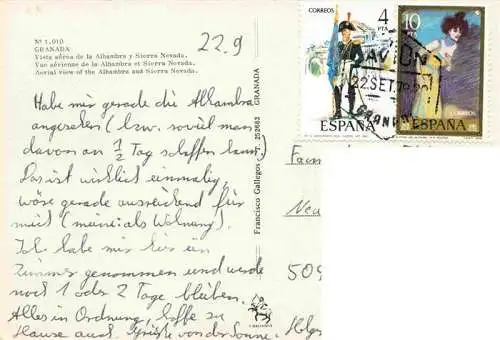 Nº 1.010
GRANADA
Vista aérea de la Alhambra y Sierra Nevada.
Vue aérienne de la Alhambra et Sierra Nevada.
Aerial view of the Alhambra and Sierra Nevada.
22.9
Habe mir gerade die Alhambra
angesehen (bzw. soviel man
davon an 1/2 Tag schaffen kann).
Das ist wirklich einmalig,
wäre gerade ausreichend für
mich (meine: als Wohnung).
Ich habe mir hier ein
Zimmer genommen und werde
noch 1 oder 2 Tage bleiben.
Alles in Ordnung, hoffe zu
Hause auch. Grüße von der Sonne.
Francisco Gallegos - T. 252683 GRANADA
CORREOS
4
PTA
ESPAÑA
10
PTA
CORREOS
ESPAÑA
AVION
22 SET.
GRANADA
Fam
Neu
509